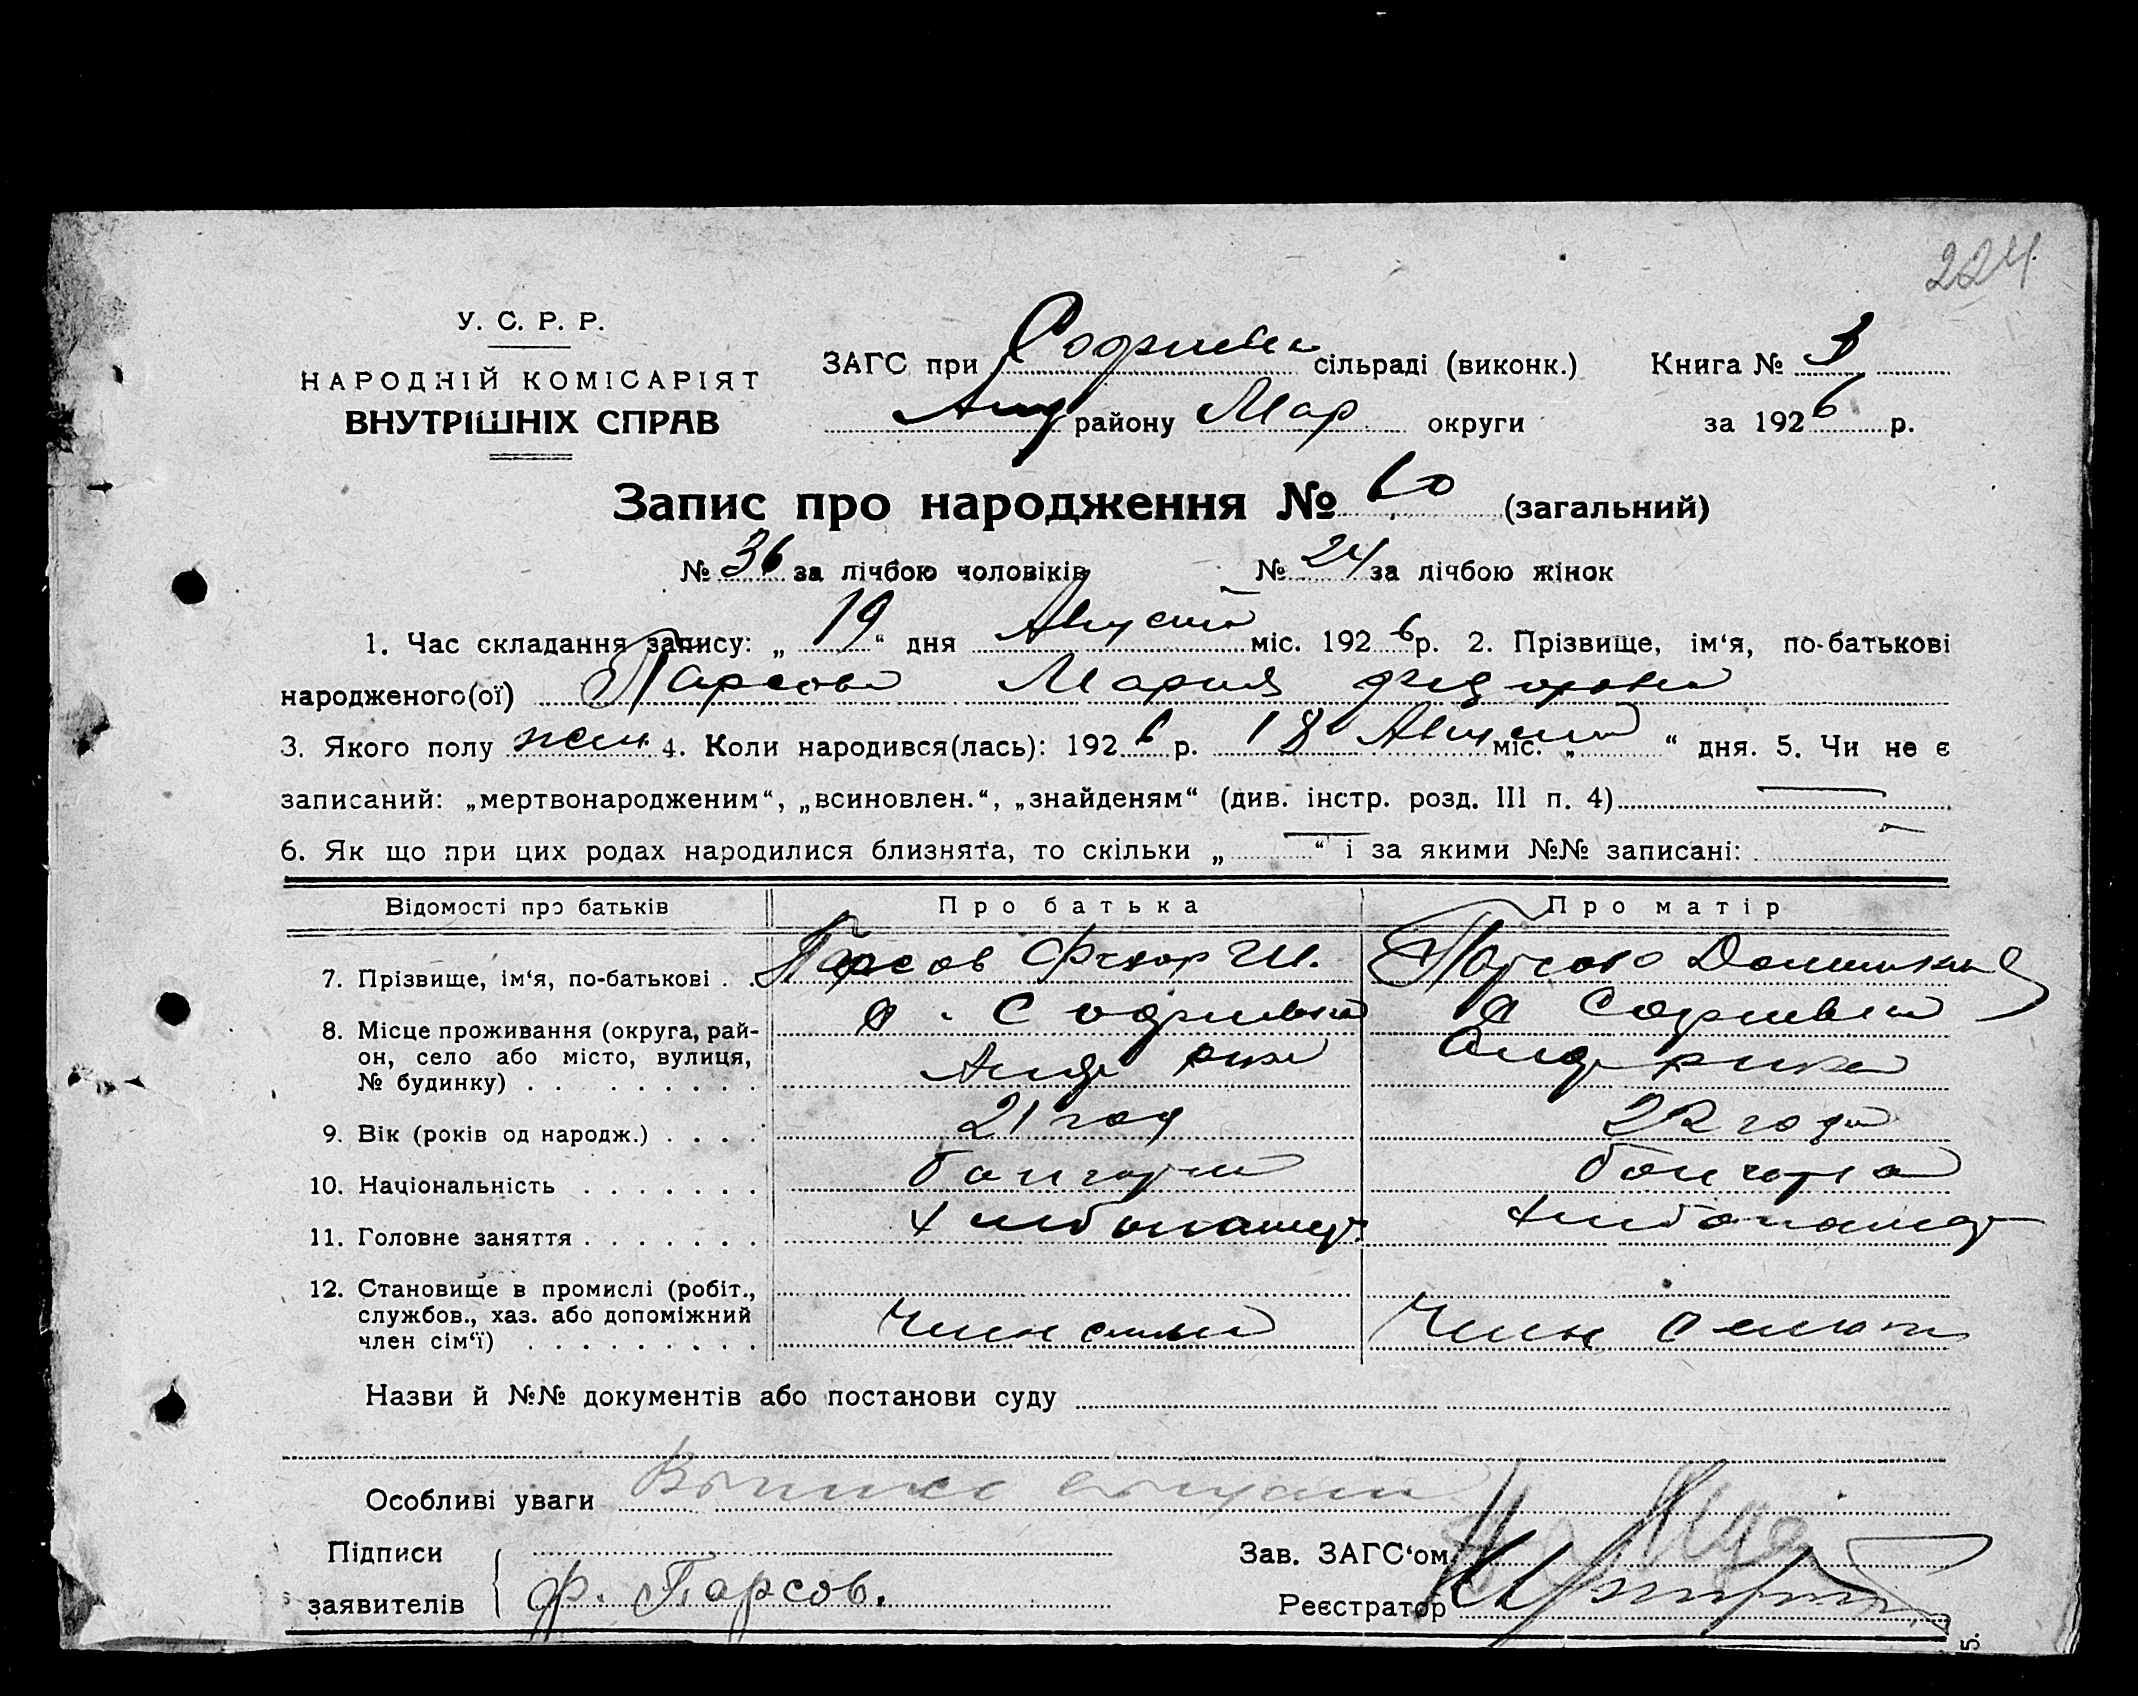 224
У. С. Р. Р.
НАРОДНІЙ КОМІСАРІЯТ
ВНУТРІШНІХ СПРАВ
ЗАГС при Софиевка сільраді (виконк.) Книга № 3
Анд району Мар округи за 1926 р.
Запис про народження № 60 (загальний)
№ 36 за лічбою чоловіків № 24 за лічбою жінок
1. Час складання запису: „ 19 “ дня Август міс. 1926 р. 2. Прізвище, ім‘я, по-батькові
народженого(ої) Парсова Мария Федоровна
3. Якого полу жен 4. Коли народився(лась): 1926 р. 18 Август міс. „ “ дня. 5. Чи не є
записаний: „мертвонародженим“, „всиновлен.“, „знайденям“ (див. інстр. розд. III п. 4)
6. Як що при цих родах народилися близнята, то скільки „ “ і за якими №№ записані:
Відомості про батьків Про батька Про матір
7. Прізвище, ім‘я, по-батькові Парсов Федор Парсова
8. Місце проживання (округа, рай- с. Софиевка с Софиевка
он, село або місто, вулиця, Анд р-на Анд р-на
№ будинку)
9. Вік (років од народж.) 21 год 22 года
10. Національність болгарин болгарка
11. Головне заняття хлебопашец хлебопашец
12. Становище в промислі (робіт.,
службов., хаз. або допоміжний Член семьи Член семьи
член сім‘ї)
Назви й №№ документів або постанови суду
Особливі уваги
Підписи Зав. ЗАГС‘ом
заявителів Ф. Парсов. Реєстратор
5.